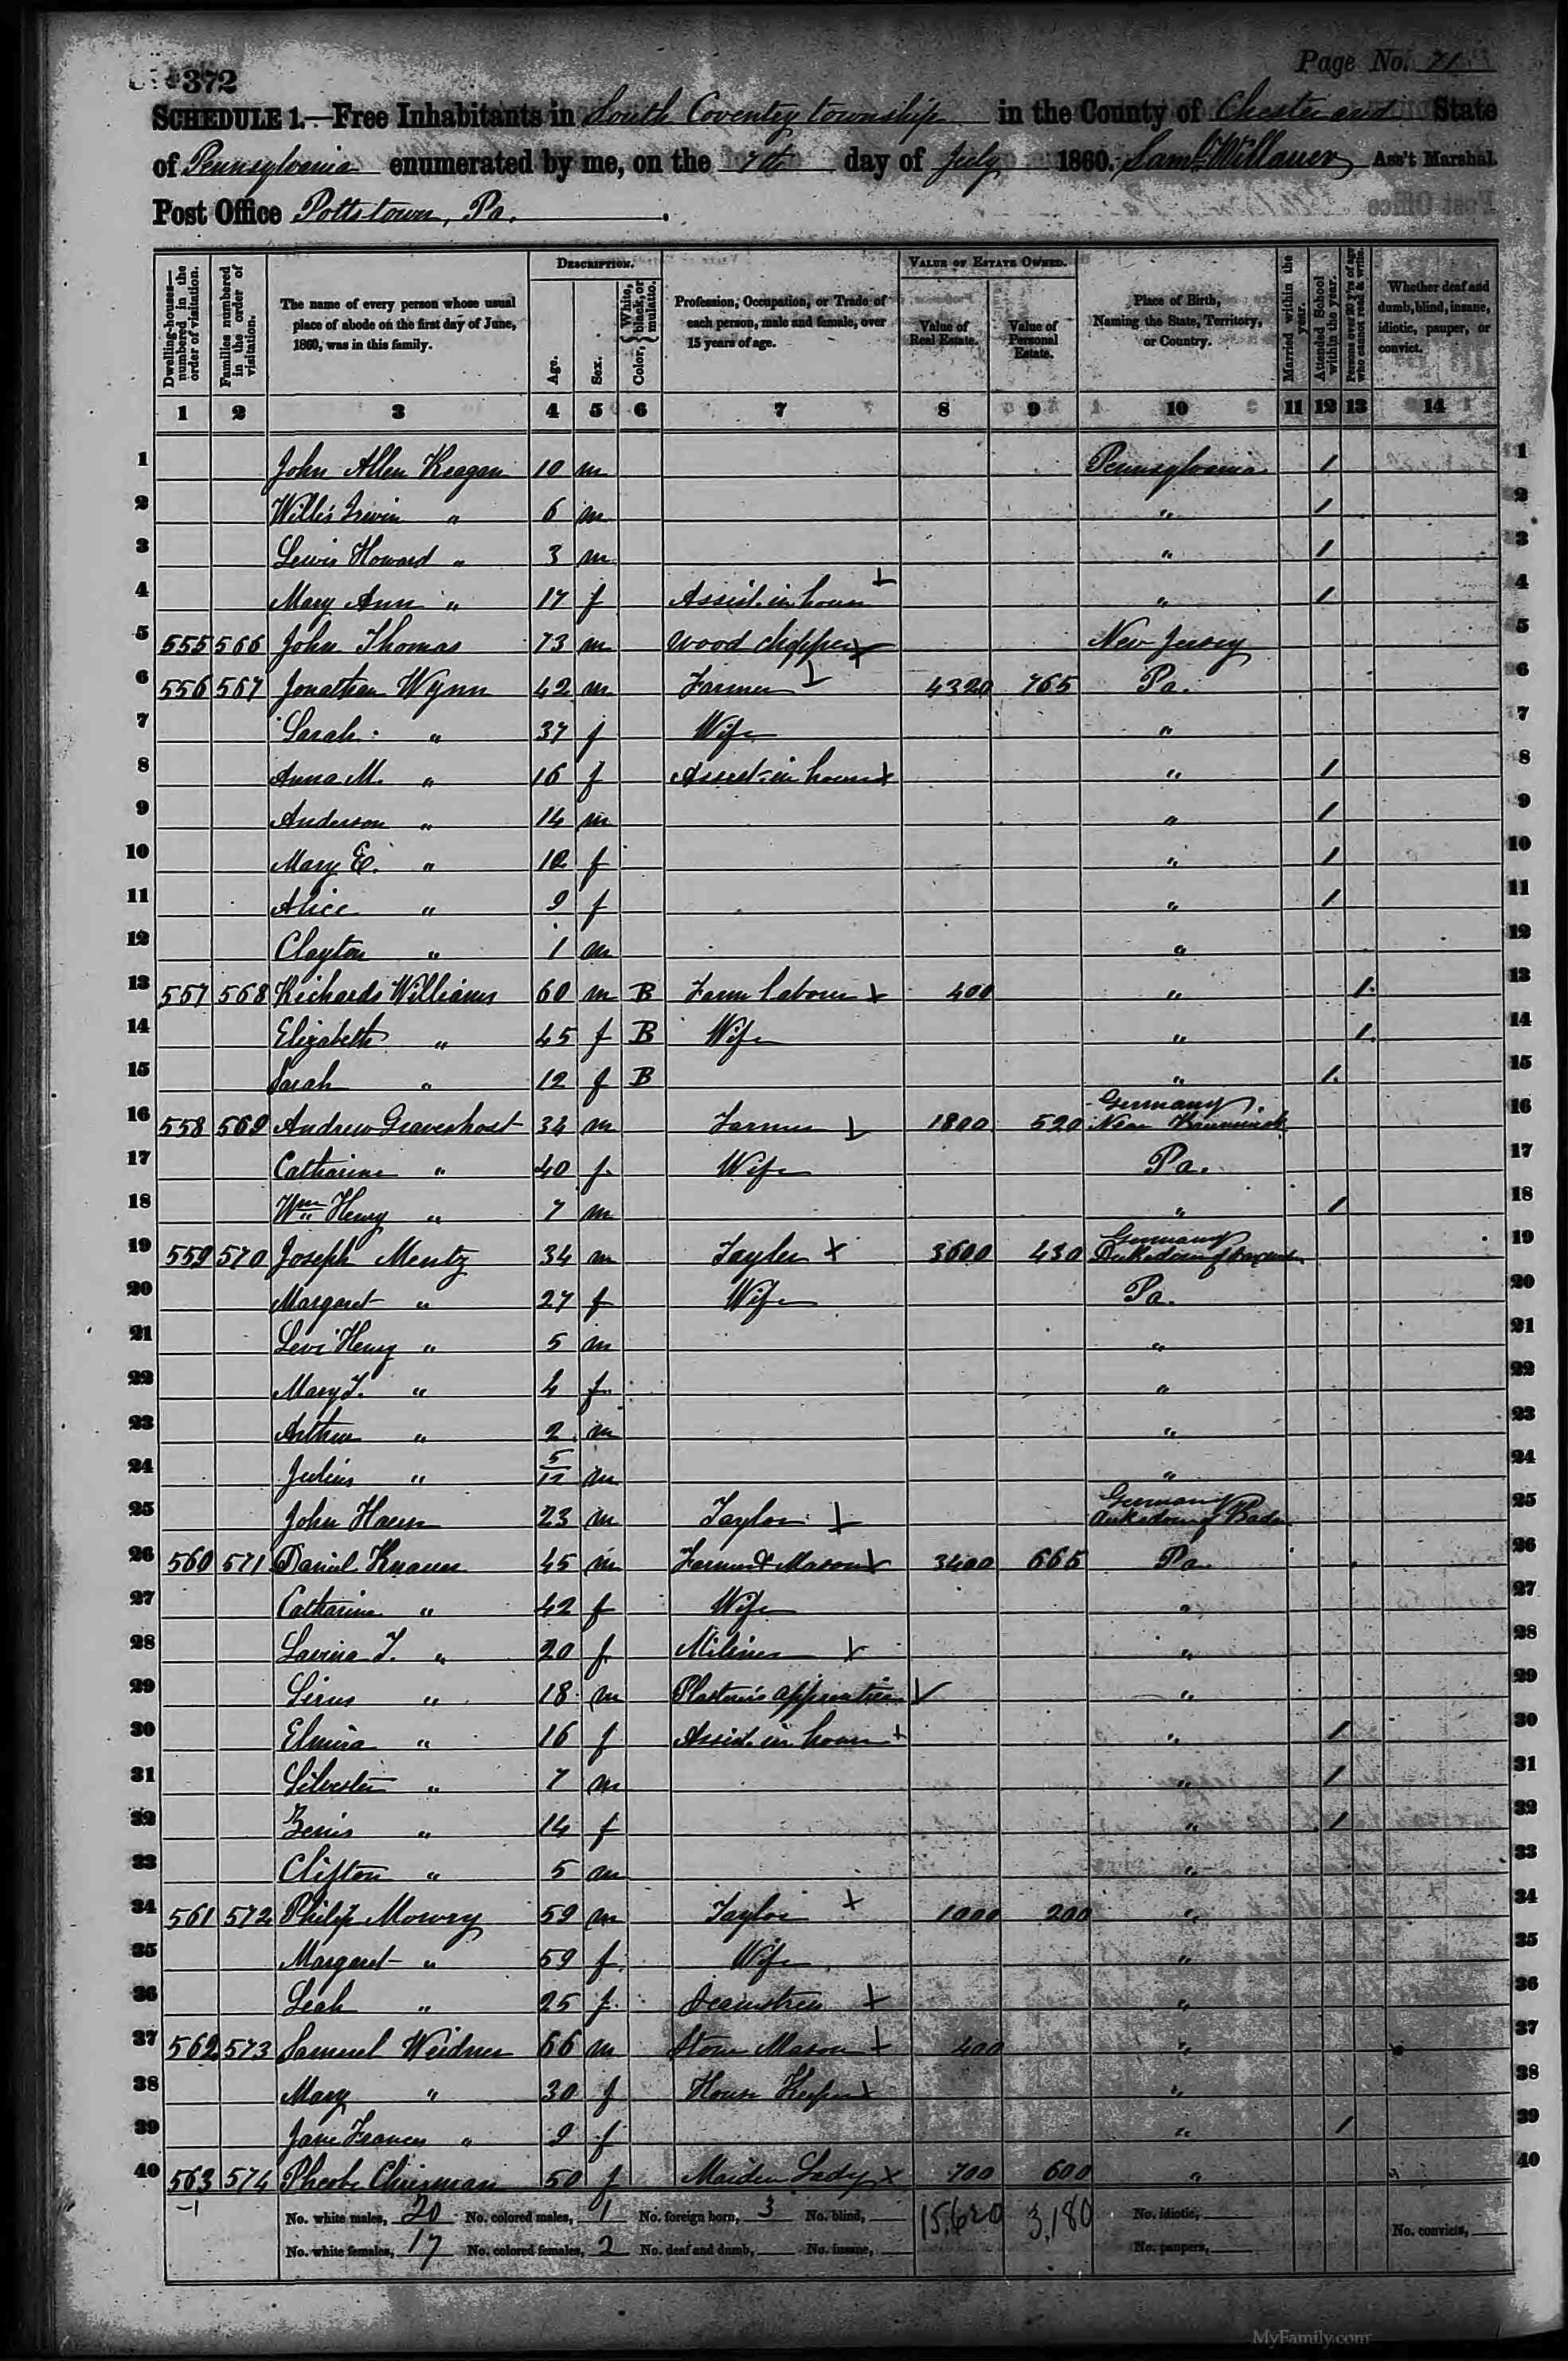 372
Page No. 71
SCHEDULE 1.—Free Inhabitants in South Coventry township in the County of Chester and State
of Pennsylvania enumerated by me, on the 7th day of July 1860. Saml Willauer Ass't Marshal.
Post Office Pottstown, Pa.
Dwelling-houses—numbered in the order of visitation.
Families numbered in the order of visitation.
The name of every person whose usual place of abode on the first day of June, 1860, was in this family.
DESCRIPTION.
Age.
Sex.
Color, { White, black, or mulatto.
Profession, Occupation, or Trade of each person, male and female, over 15 years of age.
VALUE OF ESTATE OWNED.
Value of Real Estate.
Value of Personal Estate.
Place of Birth, Naming the State, Territory, or Country.
Married within the year.
Attended School within the year.
Persons over 20 y'rs of age who cannot read & write.
Whether deaf and dumb, blind, insane, idiotic, pauper, or convict.
1 2 3 4 5 6 7 8 9 10 11 12 13 14
1 John Allen Keagan 10 m Pennsylvania / 1
2 Willis Irwin " 6 m " / 2
3 Lewis Howard " 3 m " / 3
4 Mary Ann " 17 f Assist. in house " / 4
5 555 566 John Thomas 73 m Wood chopper New Jersey 5
6 556 567 Jonathan Wynn 42 m Farmer 4320 765 Pa. 6
7 Sarah " 37 f Wife " 7
8 Anna M. " 16 f Assist. in house " / 8
9 Anderson " 14 m " / 9
10 Mary E. " 12 f " / 10
11 Alice " 9 f " / 11
12 Clayton " 1 m " 12
13 557 568 Richards Williams 60 m B Farm labourer 400 " / 13
14 Elizabeth " 45 f B Wife " / 14
15 Sarah " 12 f B " / 15
16 558 569 Andrew Graveshost 34 m Farmer 1800 520 Germany Near 16
17 Catharine " 40 f Wife Pa. 17
18 Wm Henry " 7 m " / 18
19 559 570 Joseph Mentz 34 m Tayler 3600 430 Germany Dukedom of 19
20 Margaret " 27 f Wife Pa. 20
21 Levi Henry " 5 m " 21
22 Mary J. " 4 f " 22
23 Arthur " 2 m " 23
24 Julius " 5/12 m " 24
25 John 23 m Taylor Germany Dukedom of Baden 25
26 560 571 Daniel Knauer 45 m Farmer & Mason 3400 665 Pa. 26
27 Catharine " 42 f Wife " 27
28 Lavina J. " 20 f Miliner " 28
29 Sirus " 18 m Plasterer's apprentice " 29
30 Elmira " 16 f Assist. in house " / 30
31 Silvester " 7 m " / 31
32 Zenis " 14 f " / 32
33 Clifton " 5 m " 33
34 561 572 Philip Mowry 59 m Taylor 1000 200 " 34
35 Margaret " 59 f Wife " 35
36 Leah " 25 f Seamstress " 36
37 562 573 Samuel Weidner 66 m Stone Mason 400 " 37
38 Mary " 30 f House Keeper " 38
39 Jane Frances " 9 f " / 39
40 563 574 Pheobe Chrisman 50 f Maiden Lady 700 600 " 40
No. white males, 20 No. colored males, 1 No. foreign born, 3 No. blind, 15,620 3,180 No. idiotic,
No. white females, 17 No. colored females, 2 No. deaf and dumb, No. insane, No. paupers, No. convicts,
MyFamily.com